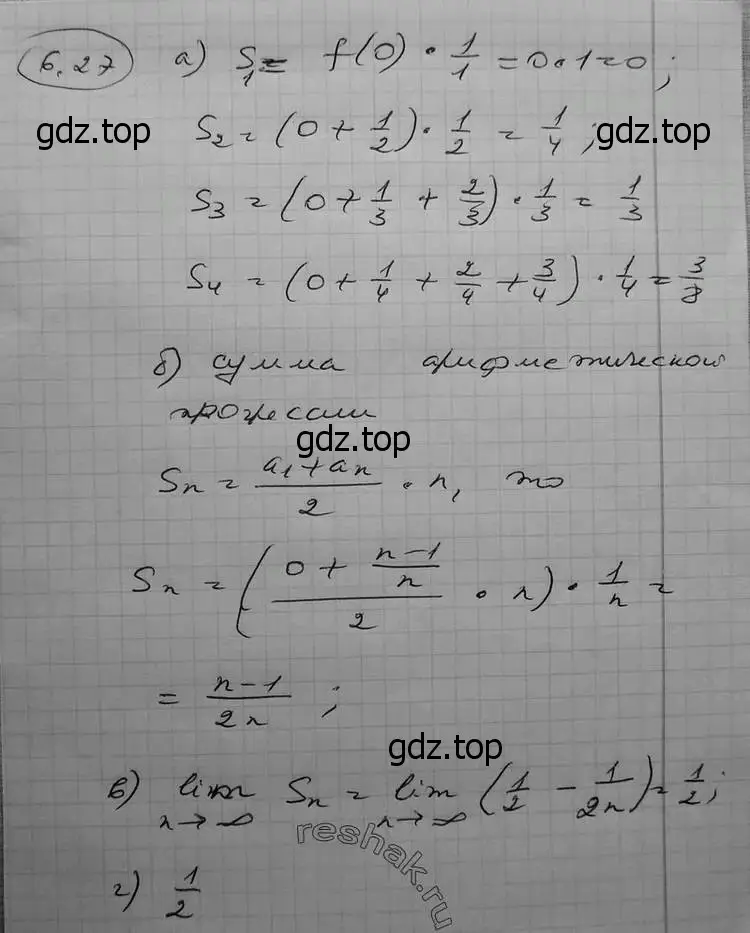 6.27 а) S₁ = f(0) · 1/1 = 0 · 1 = 0;
gdz.top
S₂ = (0 + 1/2) · 1/2 = 1/4;
gdz.top
S₃ = (0 + 1/3 + 2/3) · 1/3 = 1/3
S₄ = (0 + 1/4 + 2/4 + 3/4) · 1/4 = 3/8
б) сумма арифметической
прогрессии
gdz.top
Sn = (a₁ + an)/2 · n, то
Sn = ((0 + (n-1)/n)/2 · n) · 1/n =
= (n-1)/2n ;
gdz.top
в) lim n→∞ Sn = lim n→∞ (1/2 - 1/2n) = 1/2;
reshak.ru
г) 1/2